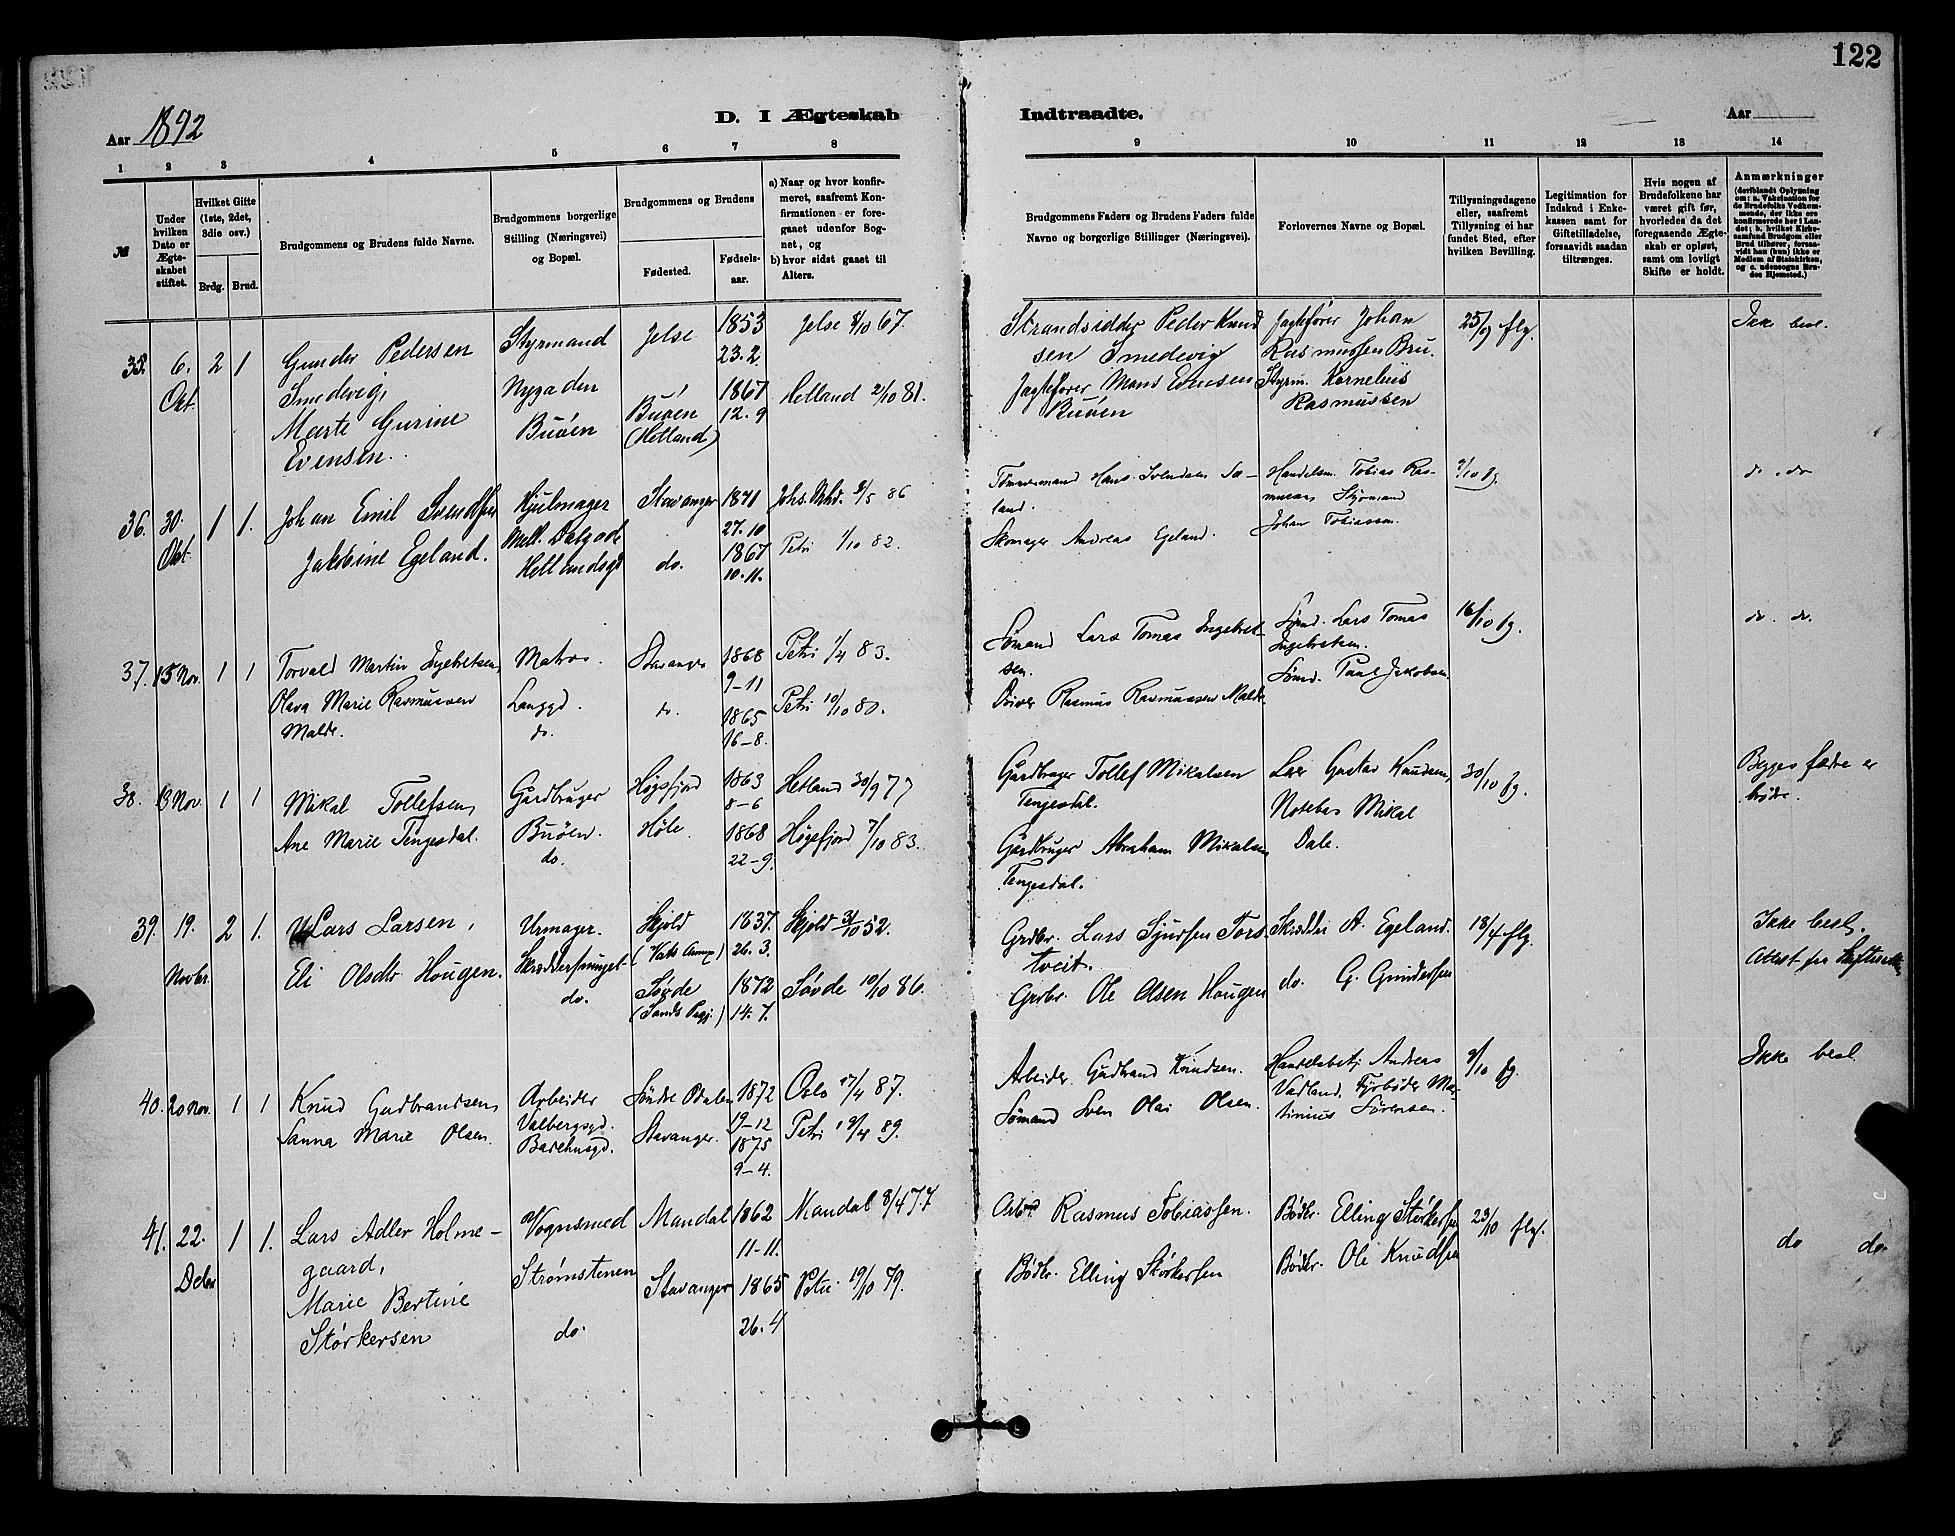 122
Aar 1892
D. I Ægteskab
Indtraadte.
Aar
1 2 3 4 5 6 7 8 9 10 11 12 13 14
№
Under hvilken Dato er Ægteskabet stiftet.
Hvilket Gifte (1ste, 2det, 3die osv.)
Brdg. Brud.
Brudgommens og Brudens fulde Navne.
Brudgommens borgerlige Stilling (Næringsvei) og Bopæl.
Brudgommens og Brudens
Fødested.
Fødselsaar.
a) Naar og hvor konfirmeret, saafremt Konfirmationen er foregaaet udenfor Sognet, og
b) hvor sidst gaaet til Alters.
Brudgommens Faders og Brudens Faders fulde Navne og borgerlige Stillinger (Næringsvei).
Forlovernes Navne og Bopæl.
Tillysningsdagene eller, saafremt Tillysning ei har fundet Sted, efter hvilken Bevilling.
Legitimation for Indskud i Enkekassen samt for Giftetilladelse, forsaavidt saadan tiltrænges.
Hvis nogen af Brudefolkene har været gift før, hvorledes da det foregaaende Ægteskab er opløst, samt om lovligt Skifte er holdt.
Anmærkninger
(deriblandt Oplysning om: a. Vakcination for de Brudefolks Vedkommende, der ikke ere konfirmerede her i Landet; b. hvilket Kirkesamfund Brudgom eller Brud tilhører, forsaavidt han (hun) ikke er Medlem af Statskirken, og c. udensogns Brudes Hjemsted.)
35. 6. Okt. 2 1
Gunder Pedersen
Smedevig,
Marte Gurine
Evensen.
Styrmand
Nygaden
Buøen
Jelse
Buøen
(Hetland)
1853
23.2
1867
12.9
Jelse 8/10 67.
Hetland 2/10 81.
Strandsidder Peder Knud
sen Smedevig
Jagtefører Mons Evensen
Buøen
Jagtefører Johan
Rasmussen Bru.
Styrm. Kornelius
Rasmussen
25/9 flg.
Ikke besl.
36. 30. Okt. 1 1.
Johan Emil Svendsen
Jakobine Egeland.
Hjulmager
Hetlandsgd
Stavanger
do.
27.10
1867
10.11.
86
Petri 1/10 82.
Tømmermand Hans Svendsen Sa-
land.
Skomager Andreas Egeland.
Handelsm. Tobias Ras-
mussen Styrmand
Johan Tobiassen.
9/10 fg.
do. do
37. 15 Nov. 1 1
Torvald Martin Ingebretsen,
Olava Marie Rasmussen
Malde.
Matros.
Langgd.
do.
Stavanger
do.
1868
9-11
1865
16-8.
Petri 1/4 83.
Petri 10/10 80.
Sømand Lars Tomas Ingebret-
sen.
Rasmus Rasmussen Malde.
Sømd. Lars Tomas
Ingebretsen.
Sømd. Paul Jakobsen.
16/10 fg.
do. do.
38. 13 Nov. 1 1
Mikal Tollefsen,
Ane Marie Tengesdal.
Gardbruger
Buøen.
do.
Høgsfjord
Høle.
1863
8-6
1868
22-9.
Hetland 30/9 77
Høgsfjord 7/10 83.
Gardbruger Tollef Mikalsen
Tengesdal.
Gardbruger Abraham Mikalsen
Tengesdal.
Gustav Knudsen,
Notebas Mikal
Dale.
30/10 fg.
Begges fædre er
brødre.
39. 19. Novbr. 2 1.
Lars Larsen,
Eli Olsdtr Hougen.
Urmager.
do.
Skjold
(Vats Annex)
Søvde
(Sands Prgj.)
1837.
26.3.
1872
14.7.
Skjold 31/10 52.
Søvde 10/10 86.
Grdbr. Lars Sjursen Tors-
tveit.
Grdbr. Ole Olsen Hougen
Skrædder A. Egeland.
do. G. Gundersen
18/4 flg.
Ikke besl.
Attest fra Skifteretten
40. 20 Nov. 1 1
Knud Gudbrandsen,
Sanna Marie Olsen.
Arbeider
Valbergsgd.
Badehusgd.
Søndre Odalen
Stavanger.
1872
19-12
1875
9-4.
Oslo 17/4 87.
Petri 89.
Arbeider Gudbrand Knudsen.
Sømand Sven Olai Olsen.
Handelsbetj. Andreas
Vadland. Fyrbøder Mar-
tinius Sørensen.
9/10 fg.
Ikke besl.
41. 22. Debr 1 1.
Lars Adler Holme-
gaard,
Marie Bertine
Størkersen
Vognsmed
Strømstenen
do.
Mandal
Stavanger
1862
11-11.
1865
26.4
Mandal 8/4 77
Petri 19/10 79.
Arbeid Rasmus Tobiassen.
Bødkr. Elling Størkersen
Bødkr. Elling Størkersen
Bødkr. Ole Knudsen
23/10 flg.
do do